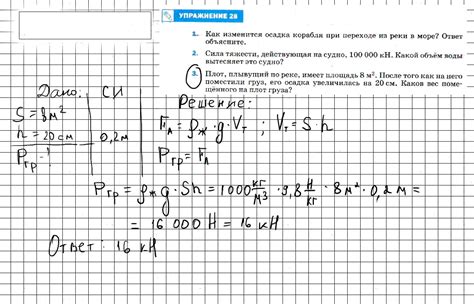 УПРАЖНЕНИЕ 28
1. Как изменится осадка корабля при переходе из реки в море? Ответ
объясните.
2. Сила тяжести, действующая на судно, 100 000 кН. Какой объём воды
вытесняет это судно?
3. Плот, плывущий по реке, имеет площадь 8 м². После того как на него
поместили груз, его осадка увеличилась на 20 см. Каков вес поме-
щённого на плот груза?
Дано: СИ
S = 8м²
h = 20 см 0,2м
Pгр - ?
Решение:
FА = ρж · g · Vт ; Vт = S · h
Pгр = FА
Pгр = ρж g · Sh = 1000 кг/м³ · 9,8 Н/кг · 8 м² · 0,2 м =
= 16 000 Н = 16 кН
Ответ: 16 кН